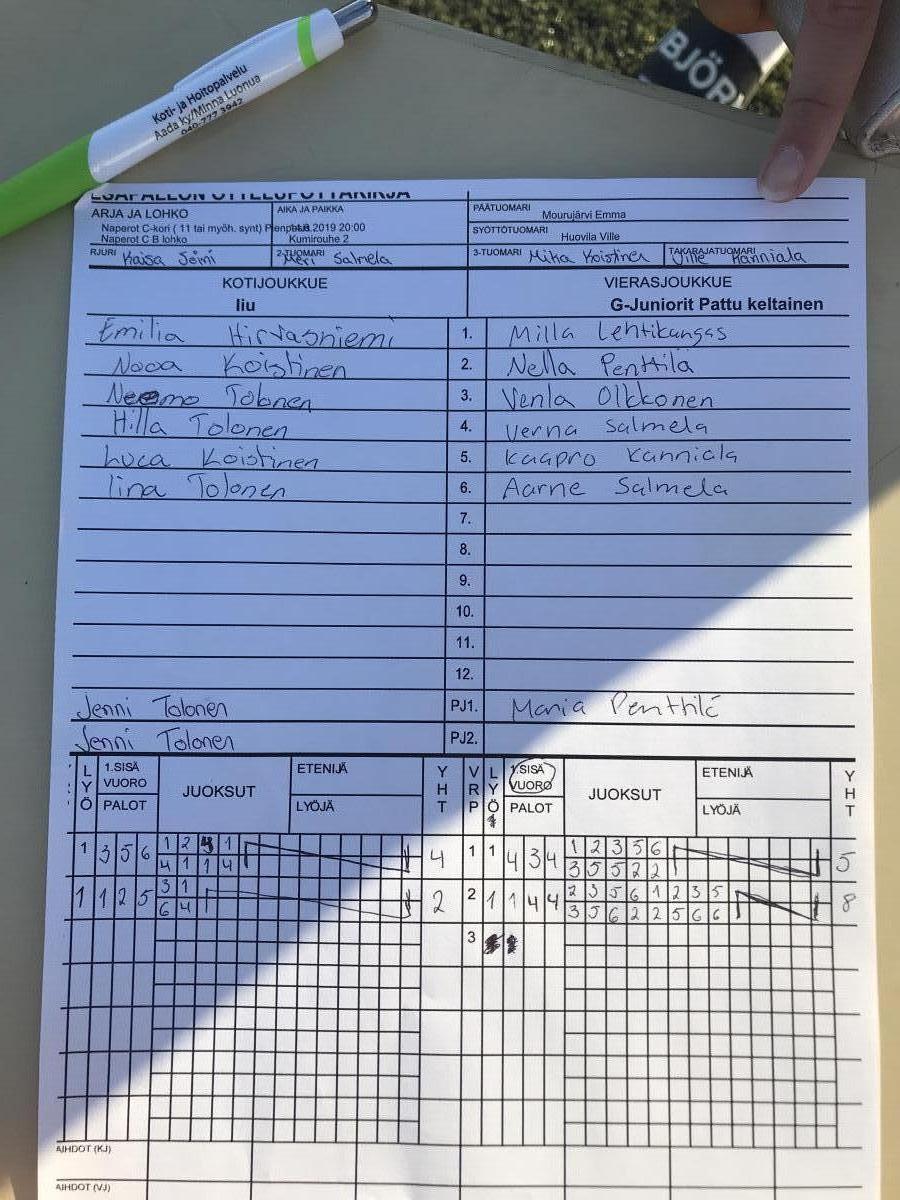 BJÖR
Koti- ja Hoitopalvelu
Aada ky/Minna Luonua
040-777 3942
ARJA JA LOHKO
Naperot C-kori ( 11 tai myöh. synt) Pienpesis
Naperot C B lohko
AIKA JA PAIKKA
.2019 20:00
Kumirouhe 2
PÄÄTUOMARI
Mourujärvi Emma
SYÖTTÖTUOMARI
Huovila Ville
RJURI Kaisa
2-TUOMARI Meri Salmela
3-TUOMARI Mika Koistinen
TAKARAJATUOMARI Ville Kanniala
KOTIJOUKKUE
VIERASJOUKKUE
Iiu
G-Juniorit Pattu keltainen
Emilia Hirvasniemi 1. Milla Lehtikangas
Nooa Koistinen 2. Nella Penttilä
Neemo Tolonen 3. Venla Olkkonen
Hilla Tolonen 4. Verna Salmela
Luca Koistinen 5. Kaapro Kanniala
Iina Tolonen 6. Aarne Salmela
7.
8.
9.
10.
11.
12.
Jenni Tolonen PJ1. Maria Penttilä
Jenni Tolonen PJ2.
LYÖ 1.SISÄ VUORO PALOT JUOKSUT ETENIJÄ LYÖJÄ YHT VRP LYÖ 1.SISÄ VUORO PALOT JUOKSUT ETENIJÄ LYÖJÄ YHT
1 3 5 6 1 2 1 4 1 1 4 3 4 1 2 3 5 6 5
4 1 1 4 3 5 5 2 2
1 1 2 5 3 1 2 2 1 1 4 4 2 3 5 6 1 2 3 5 8
6 4 3 5 6 2 2 5 6 6
3
AIHDOT (KJ)
AIHDOT (VJ)